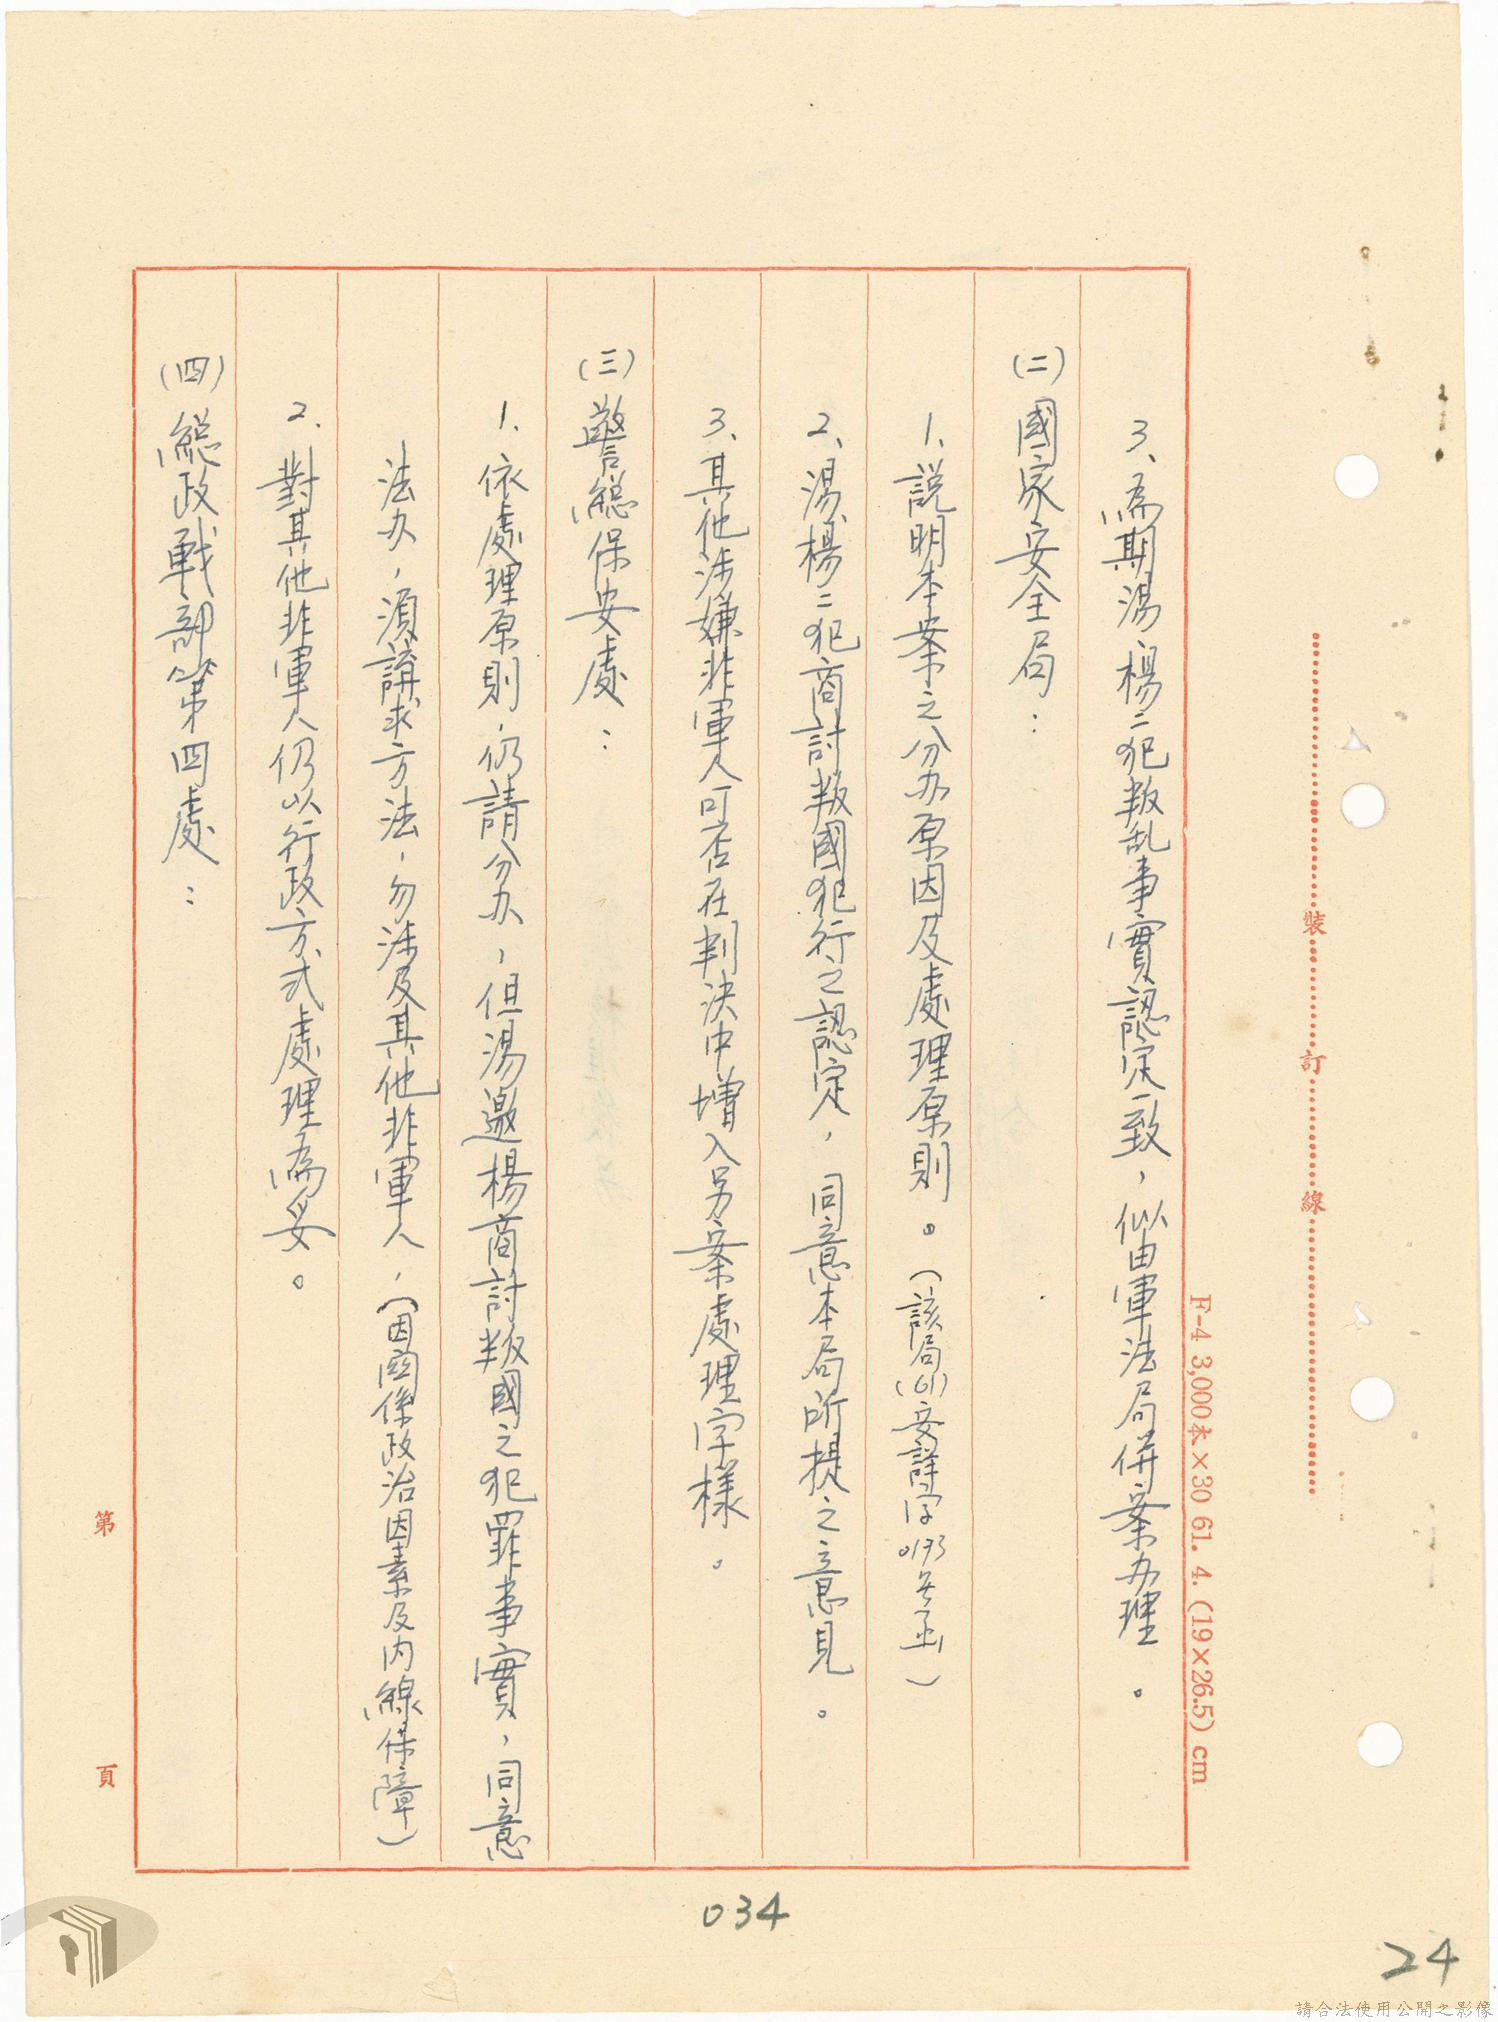 3、為期湯、楊二犯叛乱事實認定一致，似由軍法局併案办理。
(二)國家安全局：
1、說明本案之分办原因及處理原則。（該局(61)安謹字0193号函）
2、湯、楊二犯商討叛國犯行之認定，同意本局所提之意見。
3、其他涉嫌非軍人可否在判決中增入另案處理字樣。
(三)警總保安處：
1、依處理原則，仍請分办，但湯邀楊商討叛國之犯罪事實，同意
法办，須講求方法，勿涉及其他非軍人，（因関係政治因素及內線保障）
2、對其他非軍人仍以行政方式處理為妥。
(四)總政戰部第四處：
裝
訂
線
F-4 3,000本×30 61. 4. (19×26.5) cm
第
頁
034
24
請合法使用公開之影像